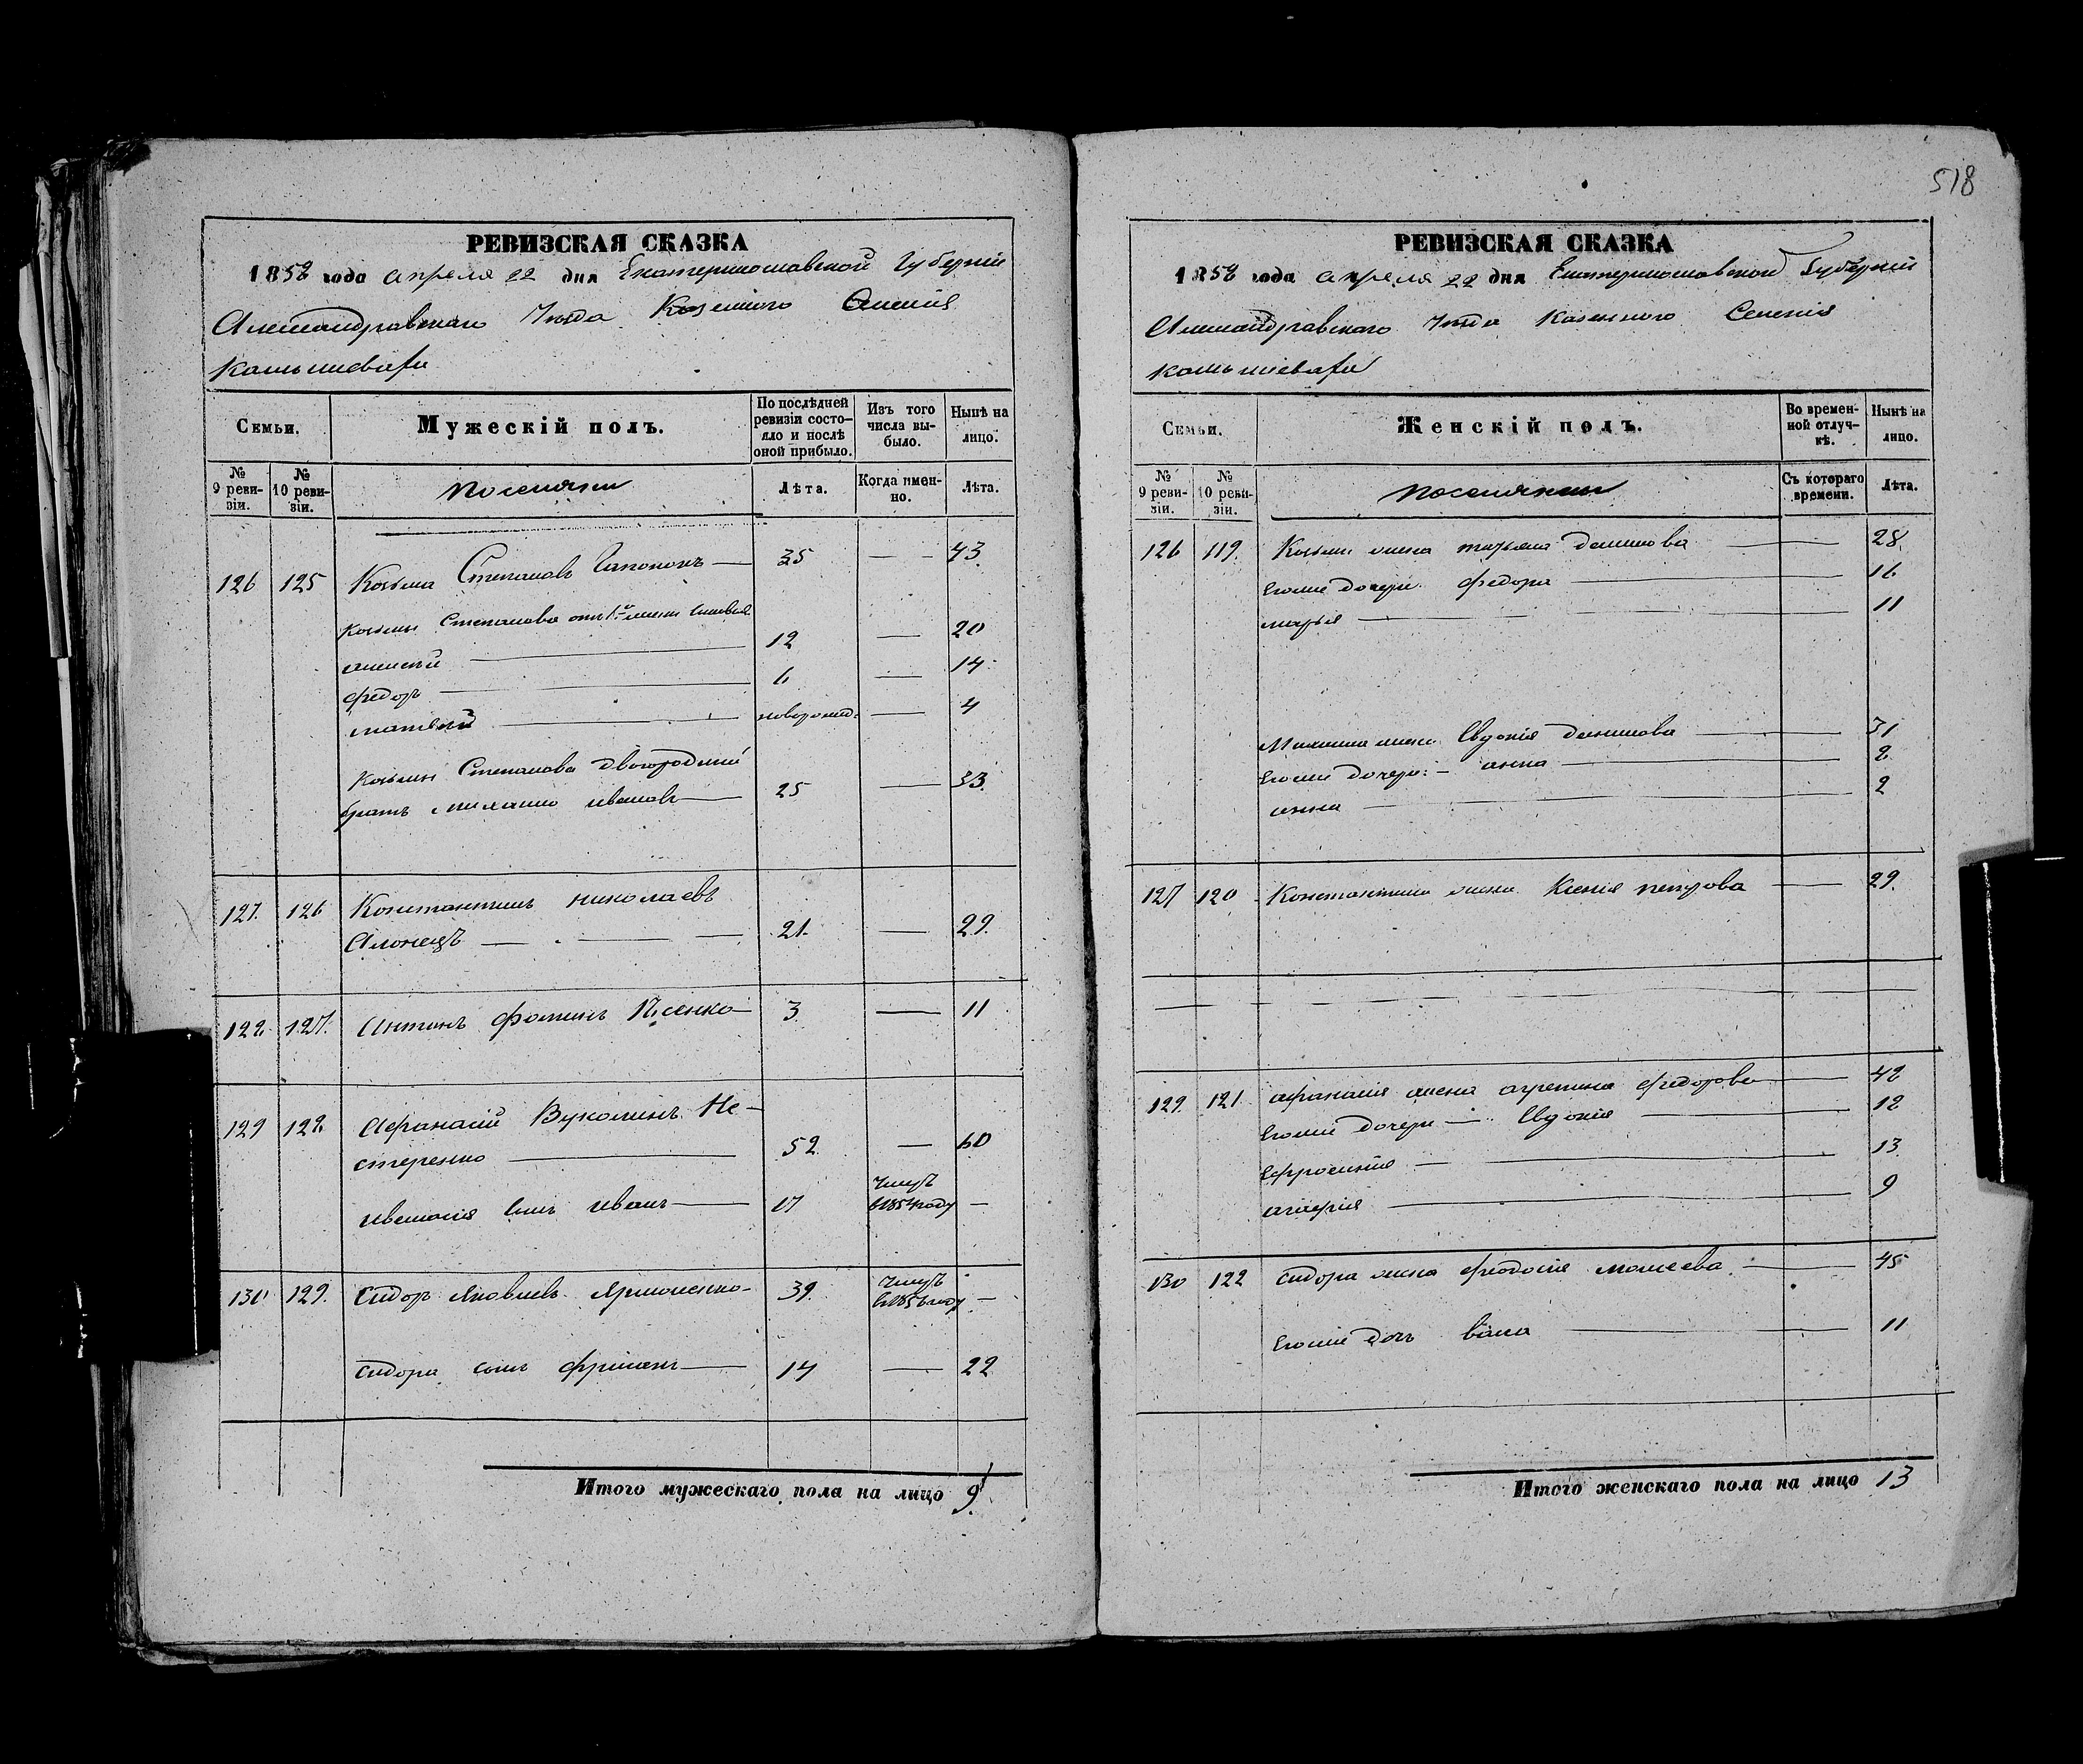 518
РЕВИЗСКАЯ СКАЗКА
1858 года апреля 22 дня Екатеринославской Губерніи
Александравскаго Уезда Казенного Селенія
Камышевахи
Семьи.
Мужескій полъ.
По послѣдней ревизіи состояло и послѣ оной прибыло.
Изъ того числа выбыло.
Нынѣ на лицо.
№ 9 ревизіи.
№ 10 ревизіи.
Поселяни
Лѣта.
Когда именно.
Лѣта.
126 125 Козьма Степановъ — 35 — — 43.
Козьмы Степанова отъ 1й жены сыновья
алексей — 12 — 20
федоръ — 6 — 14.
матвей — новорожд: — 4
Козьмы Степанова двоюродный
братъ михаило ивановъ — 25 — 33.
127. 126 Константинъ николаевъ
— 21. — 29.
128. 127. Антонъ фоминъ — 3. — 11
129 128 Афанасий Вуколинъ Не-
стеренко — 52. — 60
сынъ иванъ — 17 умеръ в 1854 году —
130 129. Сидоръ Яковлевъ Ярмоленко- 39. умеръ в 1856 году —
Сидора сынъ — 14 — 22
Итого мужескаго пола на лицо 9.
РЕВИЗСКАЯ СКАЗКА
1858 года апреля 22 дня Екатеринославской Губерніи
Александравскаго Уезда Казенного Селенія
Камышевахи
Семьи.
Женскій полъ.
Во временной отлучкѣ.
Нынѣ на лицо.
№ 9 ревизіи.
№ 10 ревизіи.
Поселянки
Съ котораго времени.
Лѣта.
126 119. Козьмы жена татьяна — 28.
Егоже дочери федора — 16
марья — 11
Михаила жена Евдокія данилова — 31
Егоже дочери: — анна — 8.
анна — 2
127 120 Константина жена Ксенія петрова — 29.
129. 121 афанасія жена агрепина федорова — 48
Егоже дочери — Евдокія — 18
Ефросинія — 13
агафія — 9
130 122 Сидора жена феодосія моисеева — 45
Егоже дочь — 11
Итого женскаго пола на лицо 13